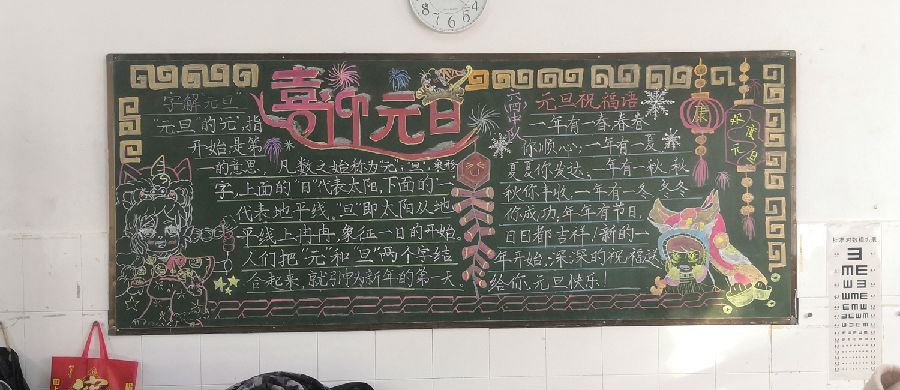 喜迎元旦
"字解元旦"
"元旦"的"元",指
开始,是第
一的意思,凡数之始称为"元";"旦",象形
字,上面的"日"代表太阳,下面的"一"
代表地平线。"旦"即太阳从地
平线上冉冉,象征一日的开始。
人们把"元"和"旦"两个字结
合起来,就引申为新年的第一天。
六四中队
元旦祝福语
一年有一春,春春
你顺心;一年有一夏,
夏夏你发达。一年有一秋,秋
秋你丰收,一年有一冬,冬冬
你成功,年年有节日,
日日都吉祥!新的一
年开始,深深的祝福送
给你,元旦快乐!
康
欢度
元旦
标准对数视力表
8 7 6 5 4